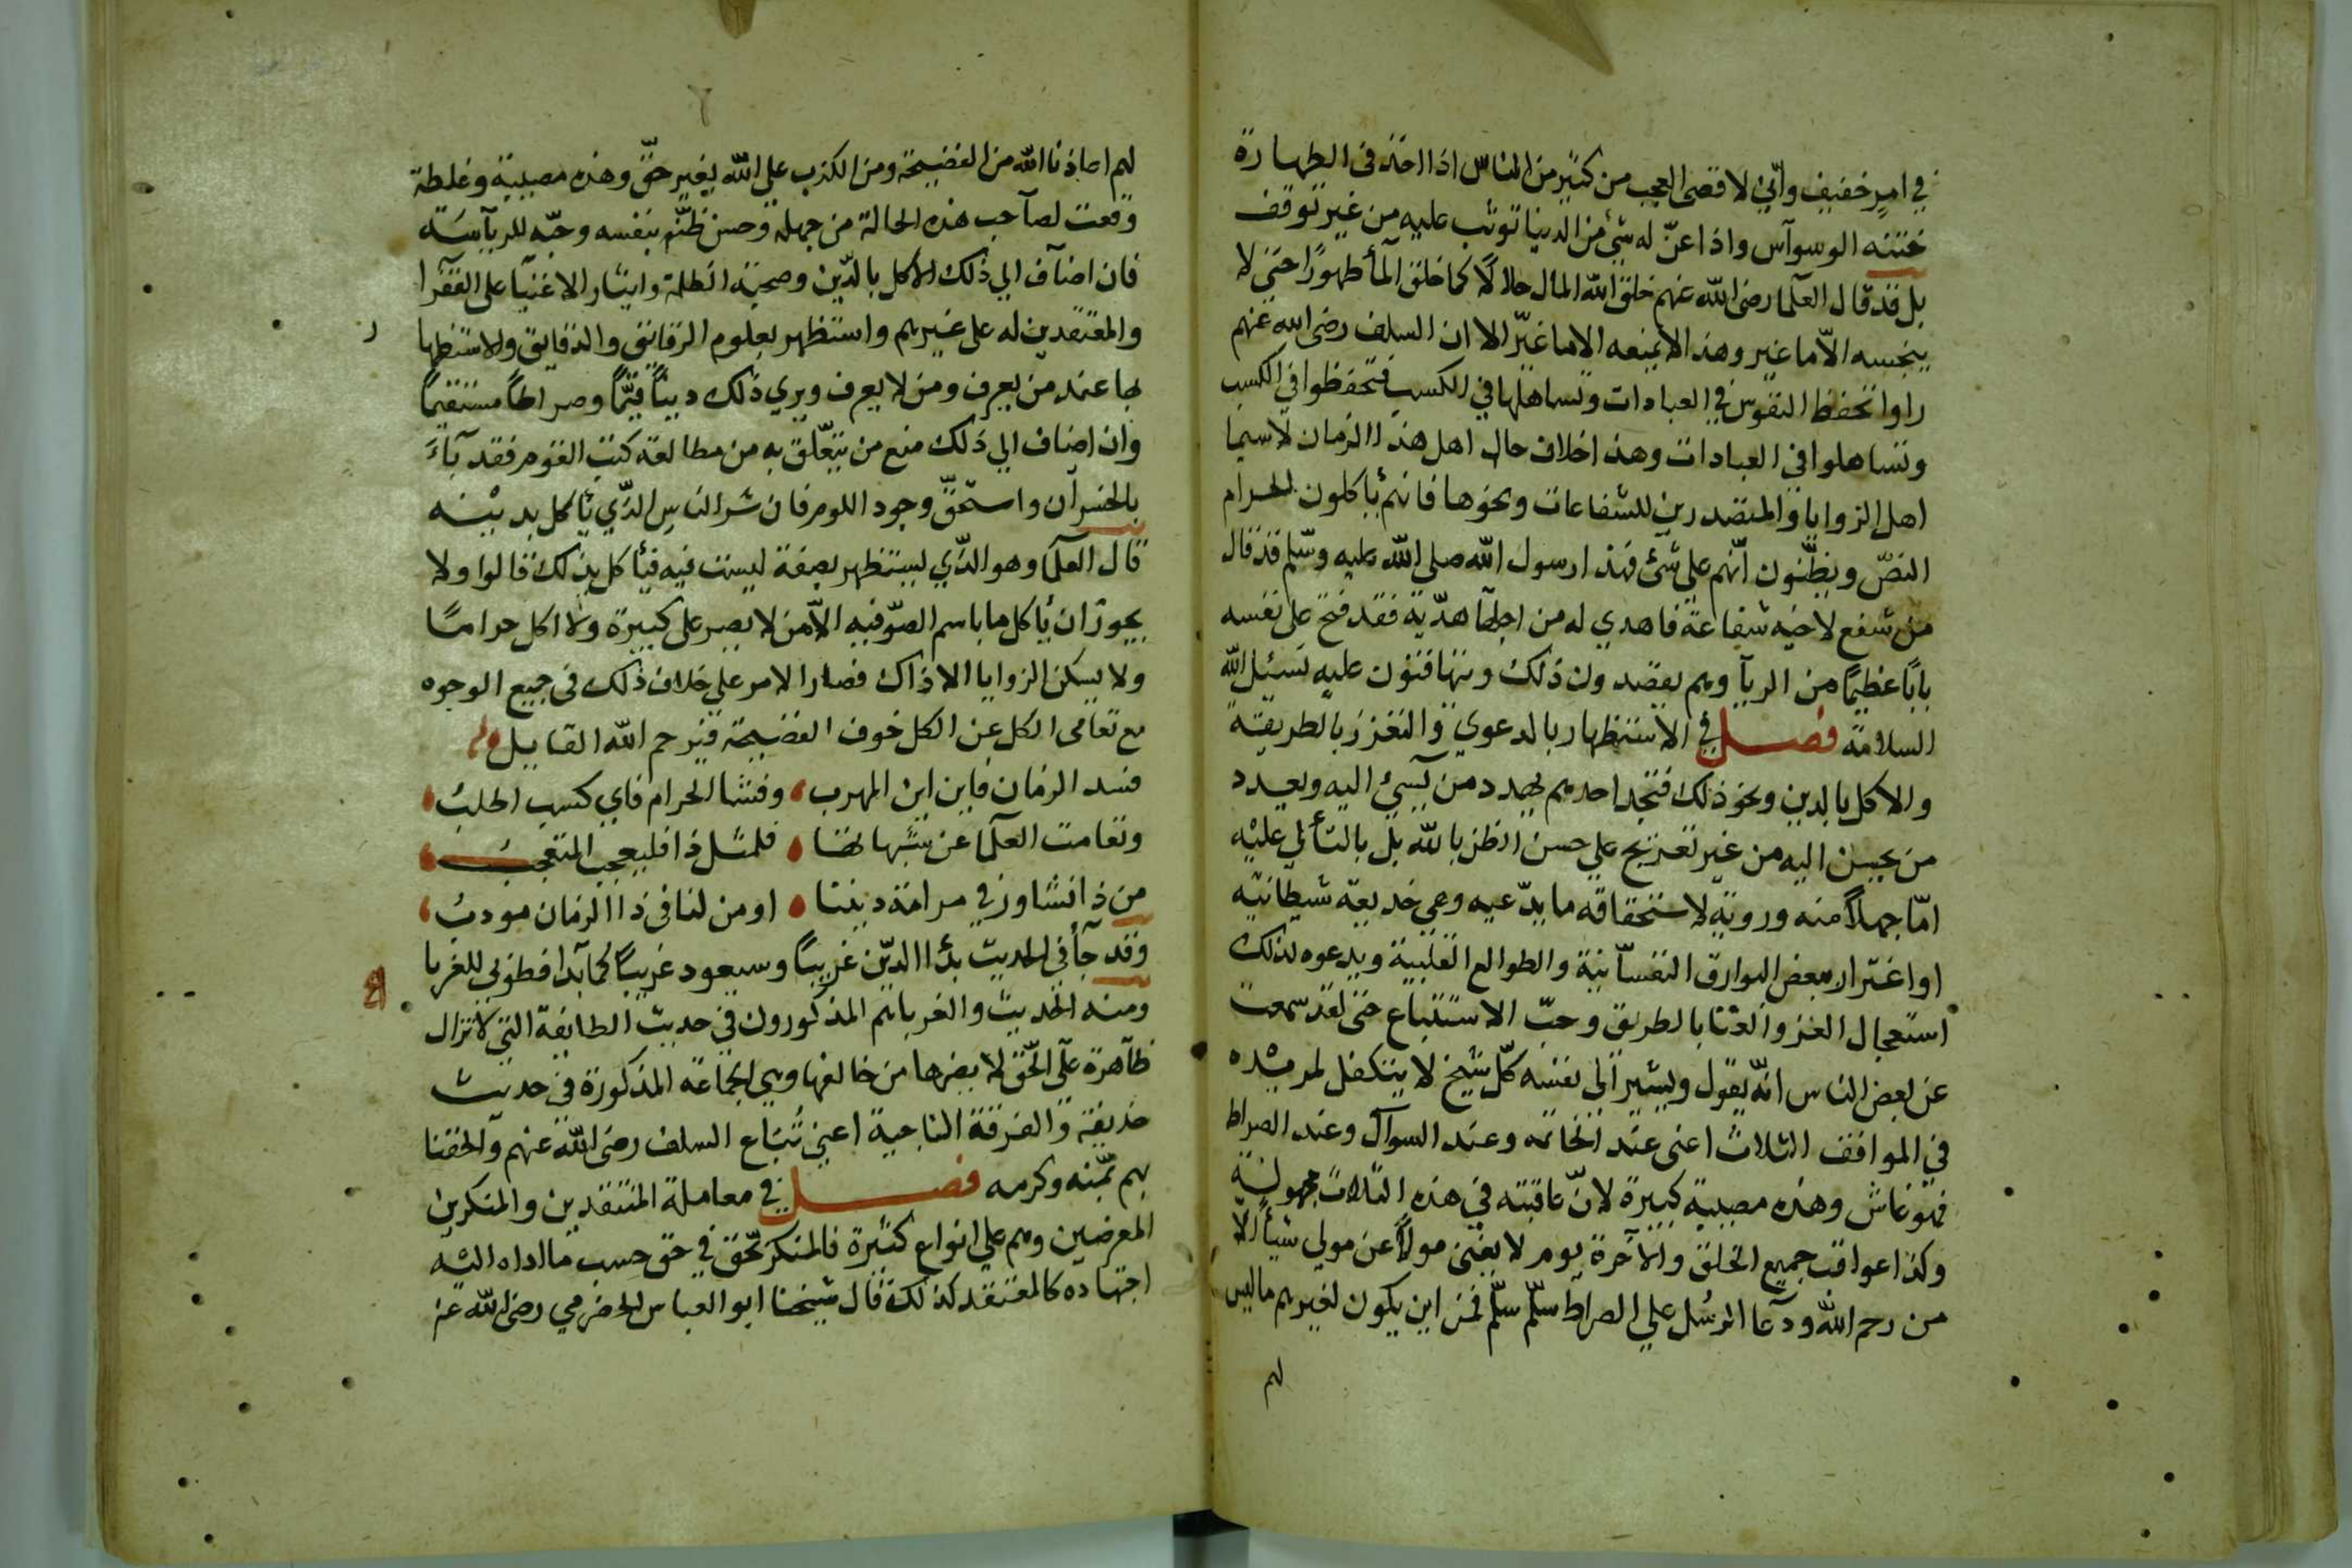 في امر خفيف وأنّي لا قضى العجب من كثير من الناس اذا اخذ في الطهارة
ختنه الوسوآس واذا عنّ له شئ من الدنيا توثب عليه من غير توقف
بل قد قال العلما رضي الله عنهم خلق الله المال حلالاً كما خلق المأ طهورًا حتى لا
ينجسه الاّ ما غير وهذ الا يمنعه الا ما غيّر الا ان السلف رضي الله عنهم
راوا تحفظ النفوس في العبادات وتساهلها في الكسب فتحفظوا في الكسب
وتساهلوا في العبادات وهذ اخلاف حال اهل هذا الزمان لاسيما
اهل الزوايا والمتصدرين للشفاعات ونحوها فانهم يأكلون الحرام
النصّ ويظنّون انّهم على شئ فهذ ارسول الله صلى الله عليه وسلّم قد قال
من شفع لاخيه شفاعة فاهدي له من اجلها هديّة فقد فتح على نفسه
بابًا عظيمًا من الربآ وهم يقصد ون ذلك ويتهافتون عليه نسئل الله
السلامة فصل في الاستظهار بالدعوي والتعزز بالطريقة
والاكل بالدين ونحو ذلك فتجد احدهم يهدد من يسيئ اليه ويعدد
من يحسن اليه من غير تعريج على حسن الظن بالله بل بالتألي عليه
امّا جهلاً منه وروية لاستحقاقه ما يدّعيه وهي خديعة شيطانية
او اغترار ببعض البوارق النفسانية والطوالع القلبية ويدعوه لذلك
استعجال العز والغنا بالطريق وحبّ الاستتباع حتى لقد سمعت
عن بعض الناس انّه يقول ويشير الى نفسه كلّ شيخ لا يتكفل لمريده
في المواقف الثلاث اعنى عند الخاتمه وعند السوآل وعند الصراط
فهو غاش وهذه مصيبة كبيرة لانّ عاقبته في هذه الثلاث مجهولة
وكذا عواقب جميع الخلق والآخرة يوم لا يغنى مولاً عن مولي شيأ الّا
من رحم الله ودعا الرسُل على الصراط سلّم سلّم فمن اين يكون لغيرهم ما ليس
لهم
لهم اعاذنا الله من الفضيحة ومن الكذب على الله بغير حقّ وهذه مصيبة وغلطة
وقعت لصآحب هذه الحالة من جهله وحسن ظنّه بنفسه وحبّه للريآسة
فان اضآف الي ذلك الاكل بالدّين وصحبة الظلمة وايثار الاغنيآ على الفقرا
والمعتقدين له على غيرهم واستظهر بعلوم الرقائق والدقايق والاستظها
بها عند من يعرف ومن لا يعرف ويري ذلك دينًا قيّمًا وصراطًا مستقيمًا
وان اضاف الي ذلك منع من يتعّلق به من مطالعة كتب القوم فقد بآء
بالخسرآن واستحقّ وجود اللوم فان شر الناس الذّي يأكل بدينه
قال العلما وهو الذّي يستظهر بصفة ليست فيه فيأكل بذلك قالوا ولا
يجوز ان يأكل ما باسم الصّوفيه الاّ من لا يصر على كبيرة ولا اكل حرامًا
ولا يسكن الزوايا الا ذاك فصار الامر على خلاف ذلك في جميع الوجوه
مع تعامى الكل عن الكل خوف الفضيحة فيرحم الله القايل
فسد الزمان فاين اين المهرب وفشا الحرام فاي كسب اطلبُ
وتعامت العلما عن شبهاتها فلمثل ذا فليعجب المتعجبُ
من ذا نشاور في مرامة ديننا او من لنا في ذا الزمان مودبُ
وقد جآء في الحديث بدأ الدّين غريبًا وسيعود غريبًا كما بدا فطوبي للغربا
ومنه الحديث والغربا هم المذكورون في حديث الطايفة التي لا تزال
ظآهرة على الحّق لا يضرها من خالفها وهي الجماعة المذكورة في حديث
حذيفة والفرقة الناجية اعني تُبّاع السلف رضي الله عنهم وآلحقنا
بهم بمّنه وكرمه فصل في معاملة المنتقدين والمنكرين
المعرضين وهم على انواع كثيرة فالمنكر بحّق في حق حسب ما اداه اليه
اجتهاده كالمعتقد كذلك قال شيخنا ابو العباس الحضرمي رضي الله عنه